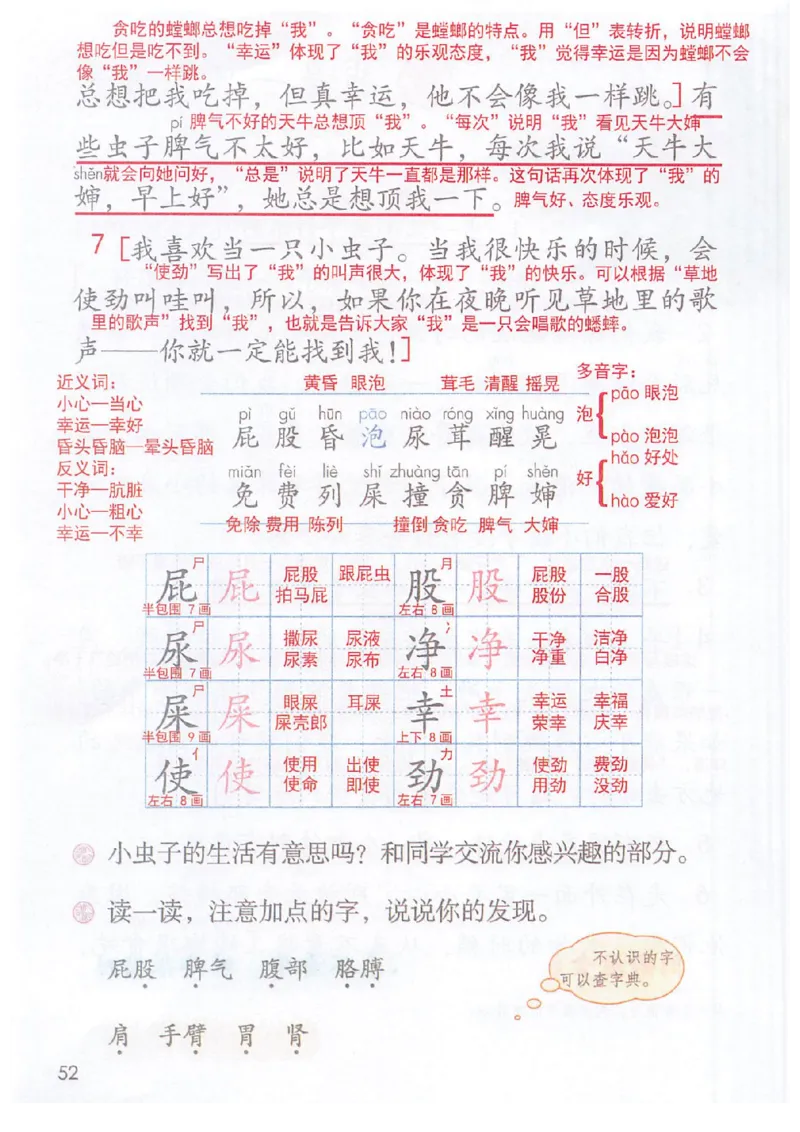 贪吃的螳螂总想吃掉“我”。“贪吃”是螳螂的特点。用“但”表转折，说明螳螂
想吃但是吃不到。“幸运”体现了“我”的乐观态度，“我”觉得幸运是因为螳螂不会
像“我”一样跳。
总想把我吃掉，但真幸运，他不会像我一样跳。］有
pí 脾气不好的天牛总想顶“我”。“每次”说明“我”看见天牛大婶
些虫子脾气不太好，比如天牛，每次我说“天牛大
shěn就会向她问好，“总是”说明了天牛一直都是那样。这句话再次体现了“我”的
婶，早上好”，她总是想顶我一下。 脾气好、态度乐观。
7［我喜欢当一只小虫子。当我很快乐的时候，会
“使劲”写出了“我”的叫声很大，体现了“我”的快乐。可以根据“草地
使劲叫哇叫，所以，如果你在夜晚听见草地里的歌
里的歌声”找到“我”，也就是告诉大家“我”是一只会唱歌的蟋蟀。
声——你就一定能找到我！］
近义词：
小心—当心
幸运—幸好
昏头昏脑—晕头昏脑
反义词：
干净—肮脏
小心—粗心
幸运—不幸
黄昏 眼泡 茸毛 清醒 摇晃
pì gǔ hūn pāo niào róng xǐng huàng
屁 股 昏 泡 尿 茸 醒 晃
miǎn fèi liè shǐ zhuàng tān pí shěn
免 费 列 屎 撞 贪 脾 婶
免除 费用 陈列 撞倒 贪吃 脾气 大婶
多音字：
泡 pāo 眼泡
pào 泡泡
好 hǎo 好处
hào 爱好
尸 月
屁 屁 屁股 跟屁虫 股 股 屁股 一股
拍马屁 股份 合股
半包围 7画 左右 8画
尸 冫
尿 尿 撒尿 尿液 净 净 干净 洁净
尿素 尿布 净重 白净
半包围 7画 左右 8画
尸 土
屎 屎 眼屎 耳屎 幸 幸 幸运 幸福
屎壳郎 荣幸 庆幸
半包围 9画 上下 8画
亻 力
使 使 使用 出使 劲 劲 使劲 费劲
使命 即使 用劲 没劲
左右 8画 左右 7画
小虫子的生活有意思吗？和同学交流你感兴趣的部分。
读一读，注意加点的字，说说你的发现。
屁股 脾气 腹部 胳膊
肩 手臂 胃 肾
不认识的字
可以查字典。
52